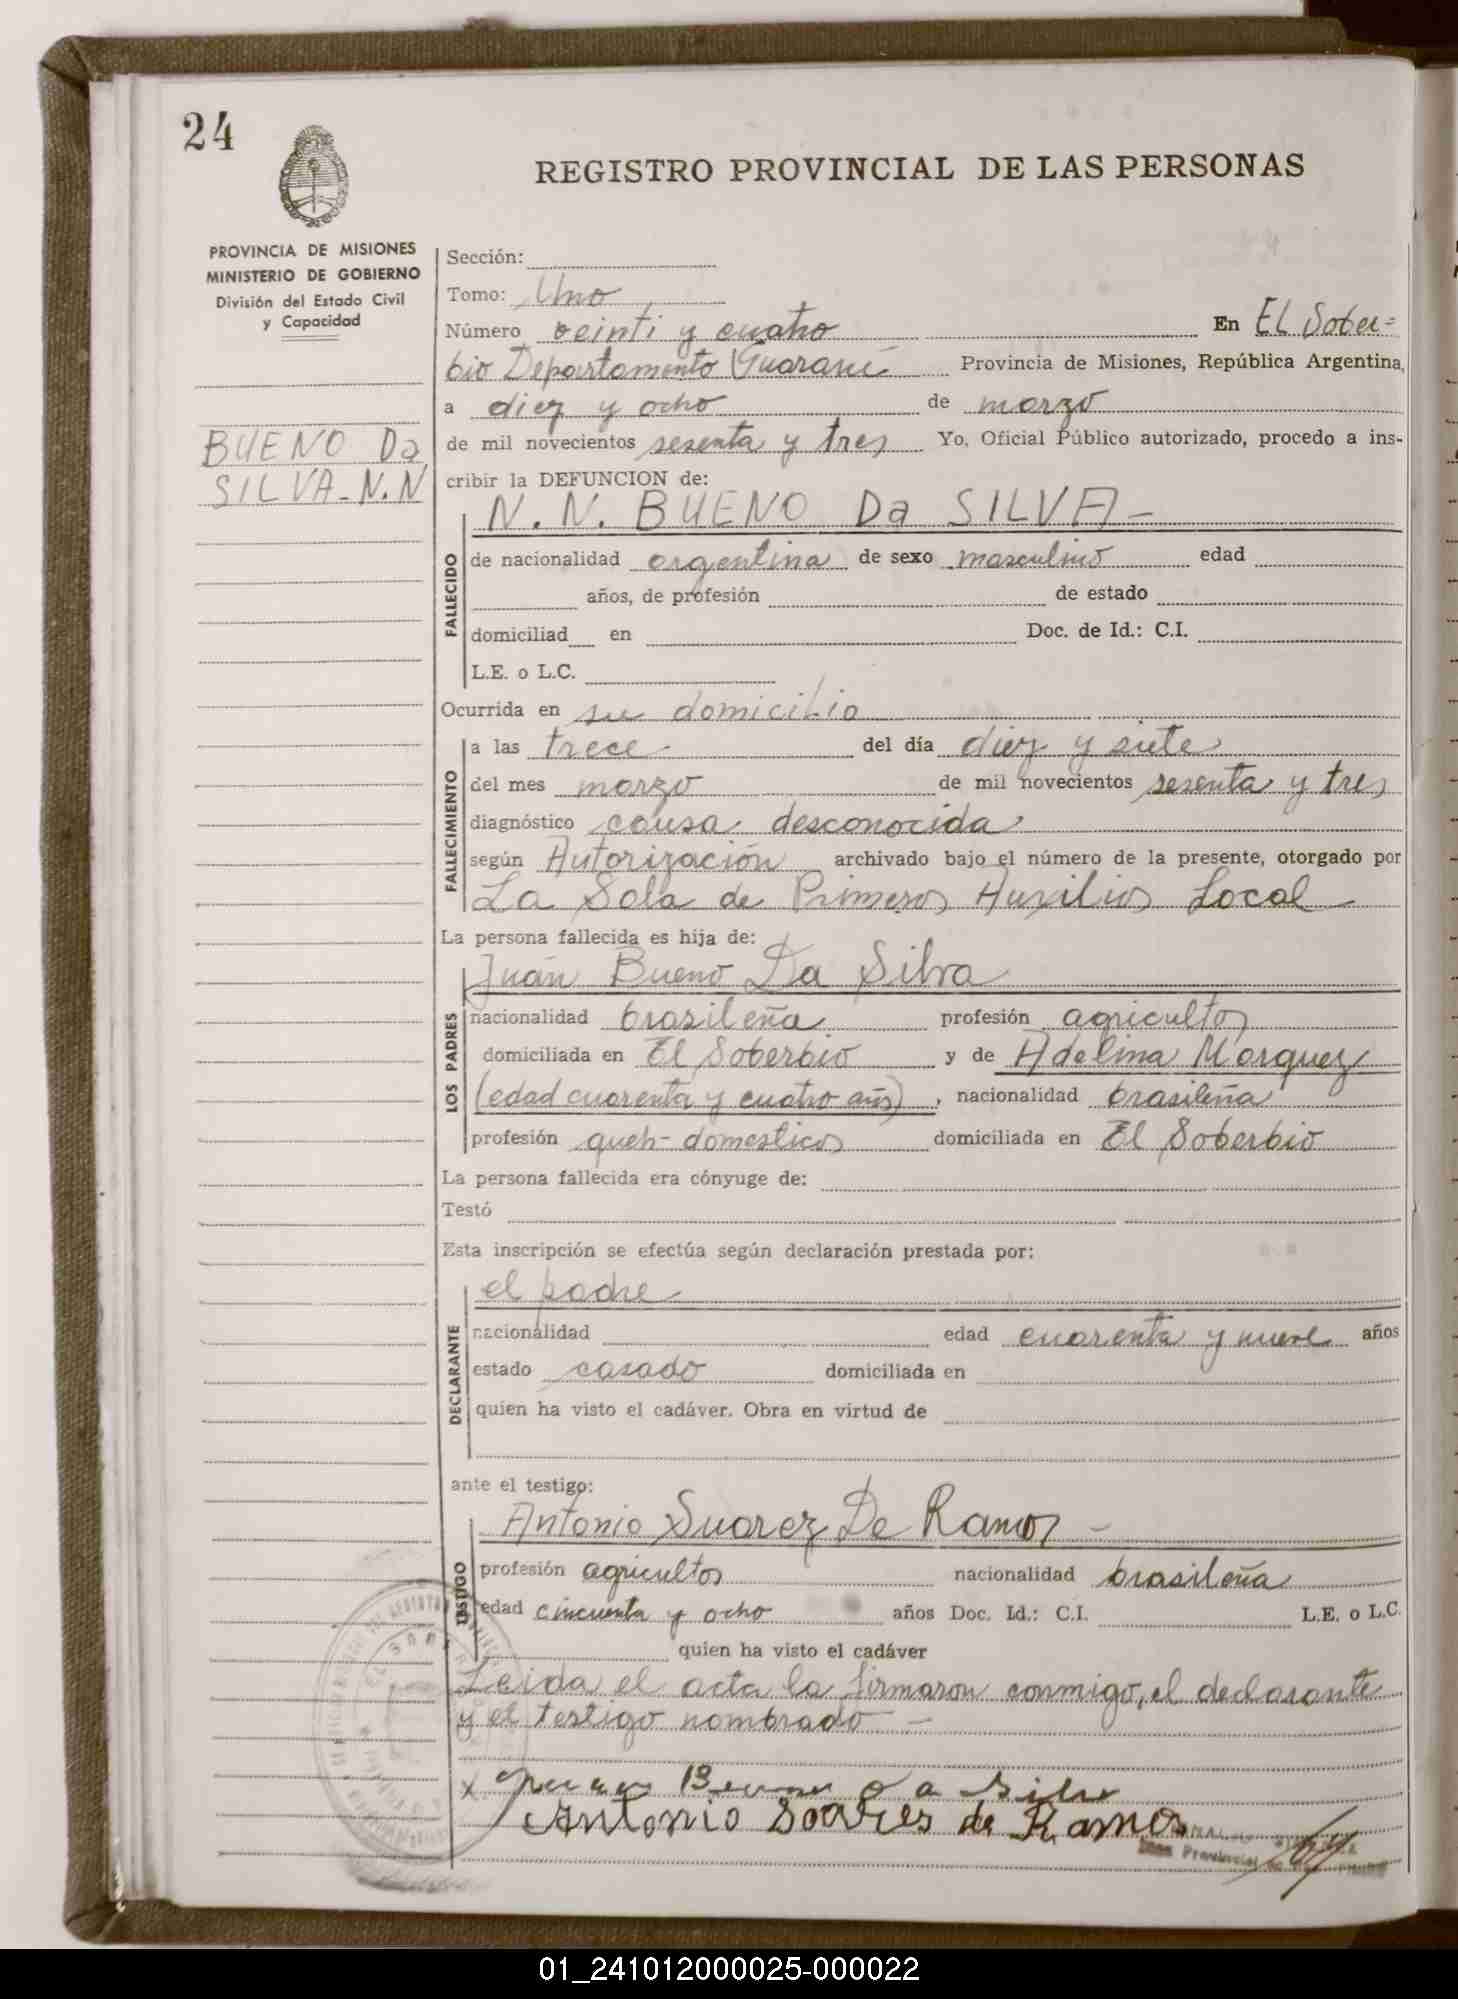 24
REGISTRO PROVINCIAL DE LAS PERSONAS
PROVINCIA DE MISIONES
MINISTERIO DE GOBIERNO
División del Estado Civil
y Capacidad
BUENO Da
SILVA-N.N
Sección:
Tomo: Uno
Número veinti y cuatro En EL Sober=
bio Departamento Guaraní Provincia de Misiones, República Argentina,
a diez y ocho de marzo
de mil novecientos sesenta y tres Yo, Oficial Público autorizado, procedo a ins-
cribir la DEFUNCION de:
N. N. BUENO Da SILVA-
FALLECIDO
de nacionalidad argentina de sexo masculino edad
años, de profesión de estado
domiciliad en Doc. de Id.: C.I.
L.E. o L.C.
Ocurrida en su domicilio
FALLECIMIENTO
a las trece del día diez y siete
del mes marzo de mil novecientos sesenta y tres
diagnóstico causa desconocida
según Autorización archivado bajo el número de la presente, otorgado por
La Sala de Primeros Auxilios Local
La persona fallecida es hija de:
Juan Bueno Da Silva
LOS PADRES
nacionalidad brasileña profesión agricultor
domiciliada en El Soberbio y de Adelina Marquez
(edad cuarenta y cuatro años), nacionalidad brasileña
profesión queh-domesticos domiciliada en El Soberbio
La persona fallecida era cónyuge de:
Testó
Esta inscripción se efectúa según declaración prestada por:
el padre
DECLARANTE
nacionalidad edad cuarenta y nueve años
estado casado domiciliada en
quien ha visto el cadáver. Obra en virtud de
ante el testigo:
Antonio Suarez De Ramos -
TESTIGO
profesión agricultor nacionalidad brasileña
edad cincuenta y ocho años Doc. Id.: C.I. L.E. o L.C.
quien ha visto el cadáver
Leida el acta la firmaron conmigo, el declarante
y el testigo nombrado -
x Juan Bueno da Silva
Antonio Soares de Ramos
01_241012000025-000022